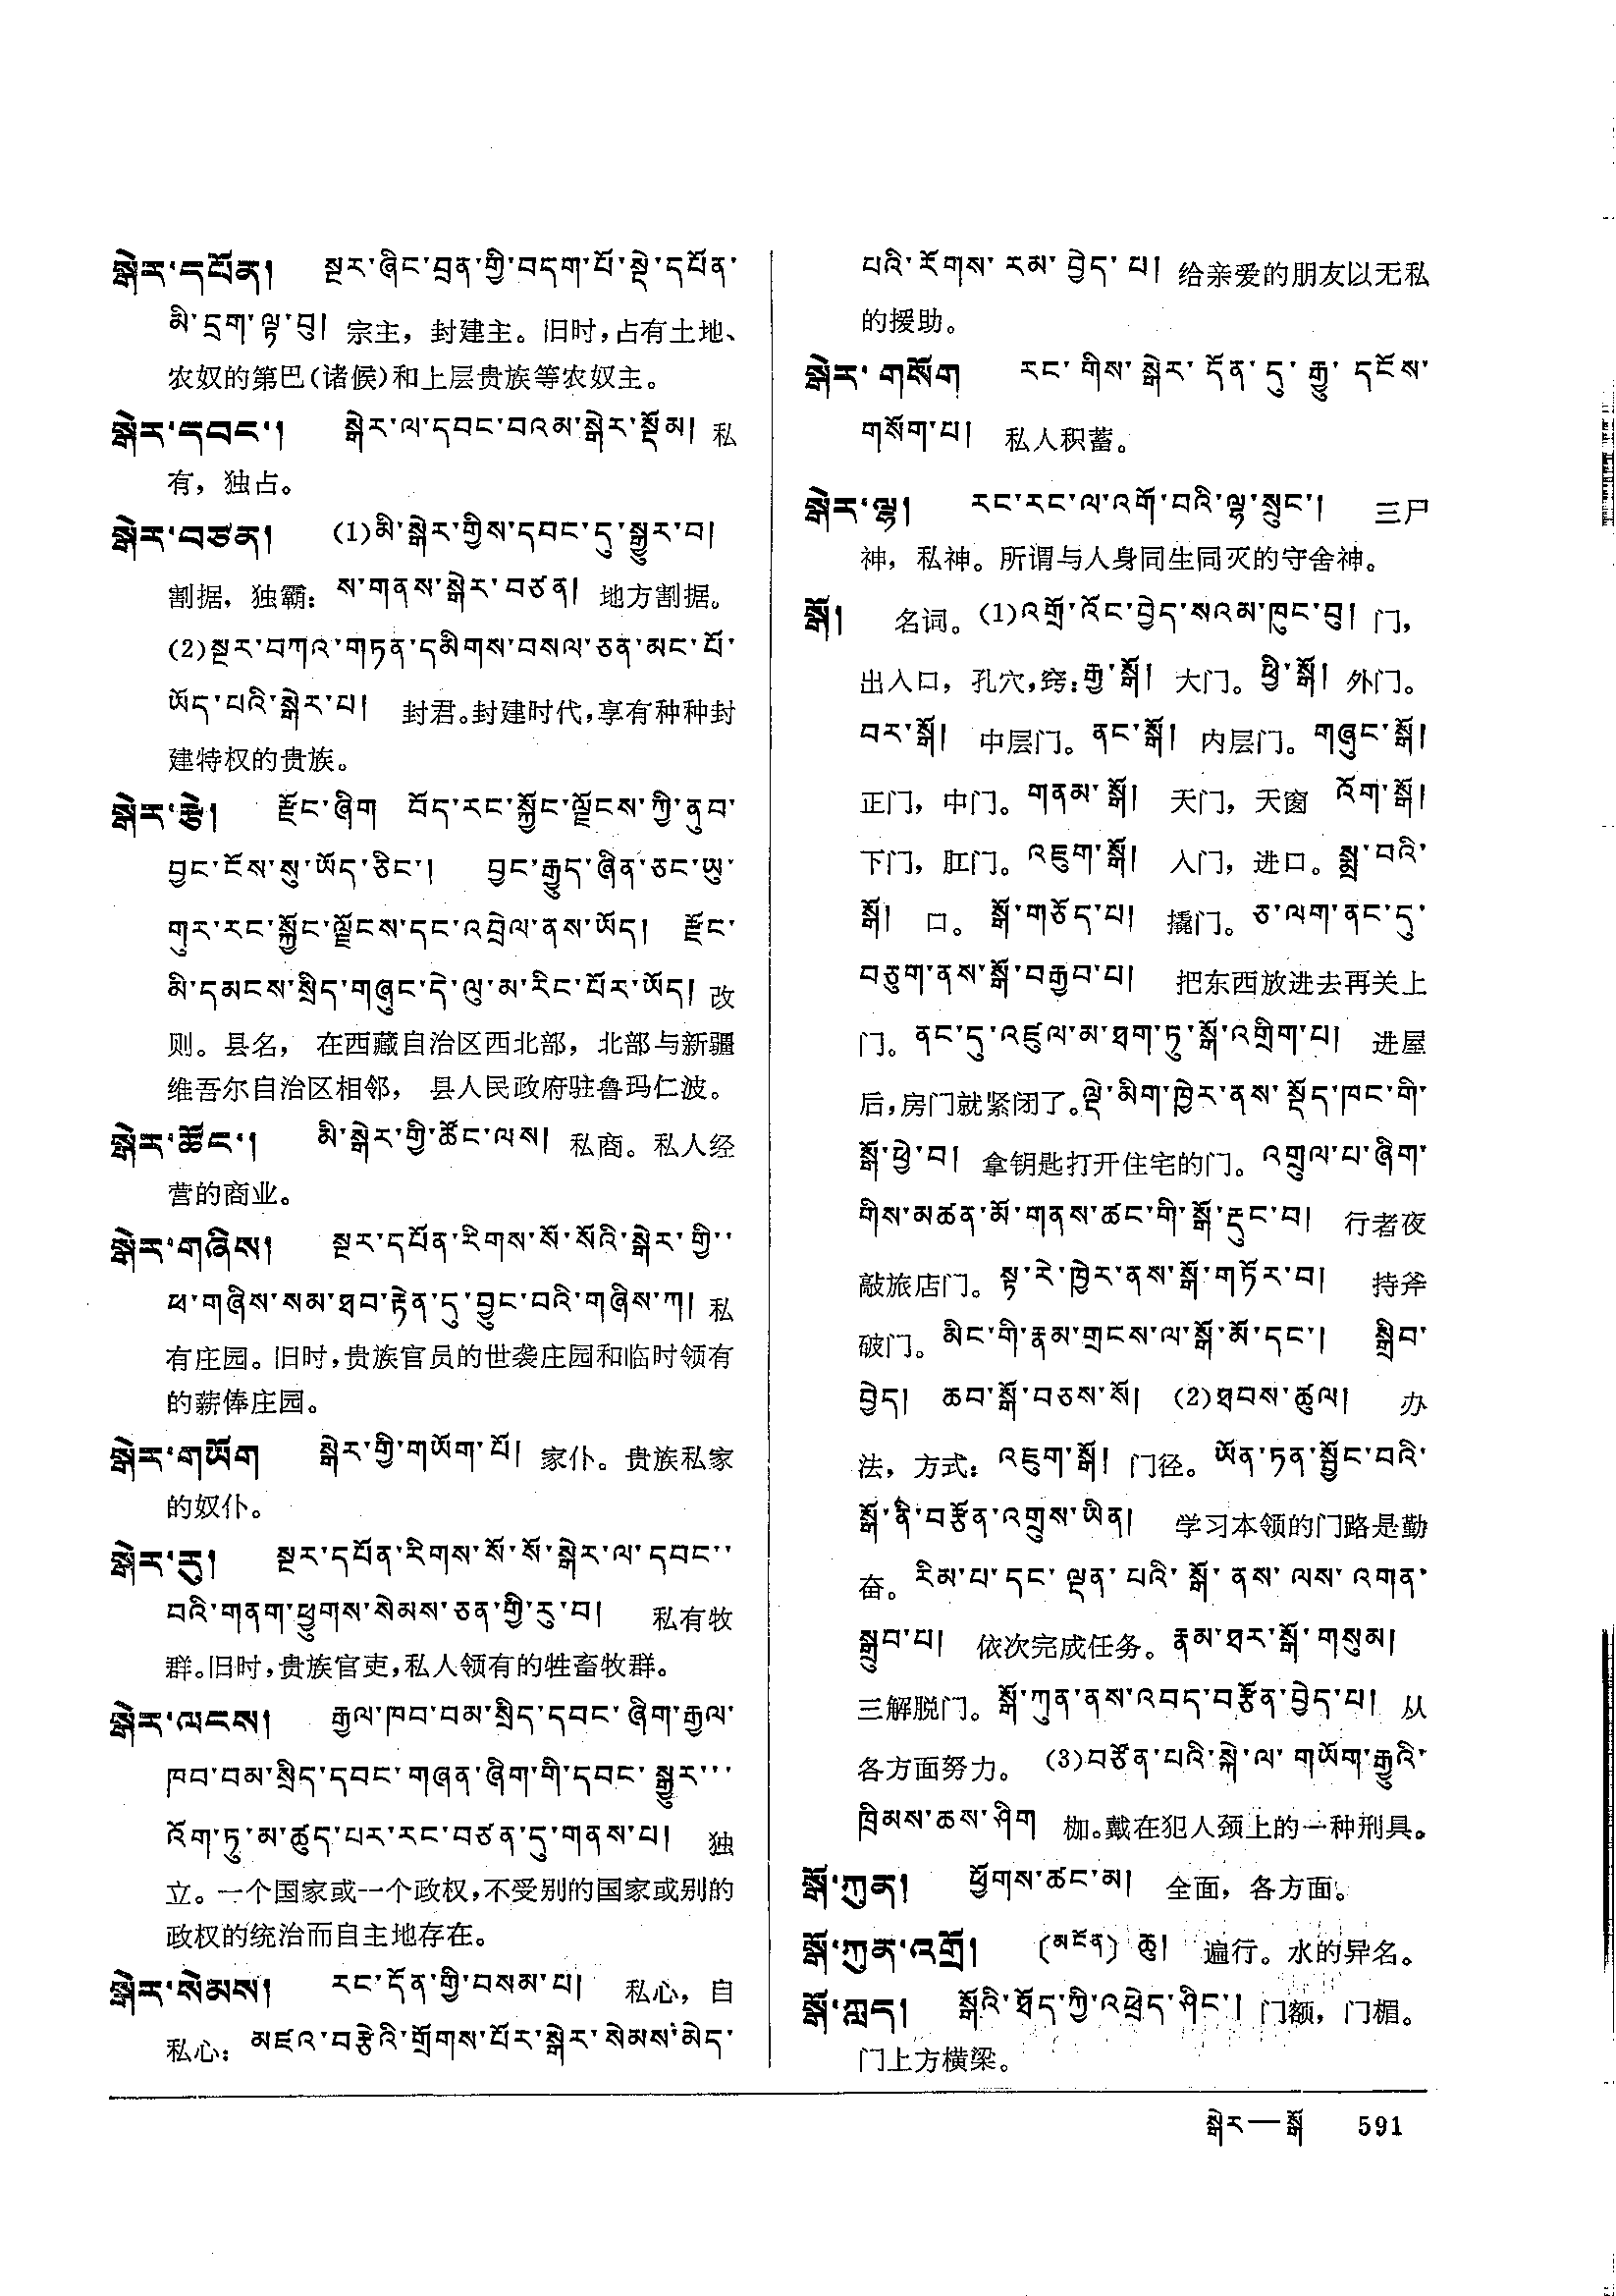 སྒེར་དཔོན། སྔར་ཞིང་བྲན་གྱི་བདག་པོ་སྡེ་དཔོན་
མི་དྲག་ལྟ་བུ། 宗主，封建主。旧时，占有土地、
农奴的第巴(诸候)和上层贵族等农奴主。
སྒེར་དབང་། སྒེར་ལ་དབང་བའམ་སྒེར་སྡོམ། 私
有，独占。
སྒེར་བཙན། (1)མི་སྒེར་གྱིས་དབང་དུ་སྒྱུར་བ།
割据，独霸：ས་གནས་སྒེར་བཙན། 地方割据。
(2)སྔར་བཀའ་གཏན་དམིགས་བསལ་ཅན་མང་པོ་
ཡོད་པའི་སྒེར་པ། 封君。封建时代，享有种种封
建特权的贵族。
སྒེར་རྩེ། རྫོང་ཞིག བོད་རང་སྐྱོང་ལྗོངས་ཀྱི་ནུབ་
བྱང་ངོས་སུ་ཡོད་ཅིང་། བྱང་རྒྱུད་ཞིན་ཅང་ཡུ་
གུར་རང་སྐྱོང་ལྗོངས་དང་འབྲེལ་ནས་ཡོད། རྫོང་
མི་དམངས་སྲིད་གཞུང་དེ་ལུ་མ་རིང་པོར་ཡོད། 改
则。县名，在西藏自治区西北部，北部与新疆
维吾尔自治区相邻，县人民政府驻鲁玛仁波。
སྒེར་ཚོང་། མི་སྒེར་གྱི་ཚོང་ལས། 私商。私人经
营的商业。
སྒེར་གཞིས། སྔར་དཔོན་རིགས་སོ་སོའི་སྒེར་གྱི་་
ཕ་གཞིས་སམ་ཐབ་རྟེན་དུ་བྱུང་བའི་གཞིས་ཀ། 私
有庄园。旧时，贵族官员的世袭庄园和临时领有
的薪俸庄园。
སྒེར་གཡོག སྒེར་གྱི་གཡོག་པོ། 家仆。贵族私家
的奴仆。
སྒེར་རུ། སྔར་དཔོན་རིགས་སོ་སོ་སྒེར་ལ་དབང་་
བའི་གནག་ཕྱུགས་སེམས་ཅན་གྱི་རུ་བ། 私有牧
群。旧时，贵族官吏，私人领有的牲畜牧群。
སྒེར་ལངས། རྒྱལ་ཁབ་བམ་སྲིད་དབང་ཞིག་རྒྱལ་
ཁབ་བམ་སྲིད་དབང་གཞན་ཞིག་གི་དབང་སྒྱུར་་་
འོག་ཏུ་མ་ཚུད་པར་རང་བཙན་དུ་གནས་པ། 独
立。一个国家或一个政权，不受别的国家或别的
政权的统治而自主地存在。
སྒེར་སེམས། རང་དོན་གྱི་བསམ་པ། 私心，自
私心：མཛའ་བརྩེའི་གྲོགས་པོར་སྒེར་སེམས་མེད་
པའི་རོགས་རམ་བྱེད་པ། 给亲爱的朋友以无私
的援助。
སྒེར་གསོག རང་གིས་སྒེར་དོན་དུ་རྒྱུ་དངོས་
གསོག་པ། 私人积蓄。
སྒེར་ལྷ། རང་རང་ལ་འགོ་བའི་ལྷ་སྲུང་། 三尸
神，私神。所谓与人身同生同灭的守舍神。
སྒོ། 名词。(1)འགྲོ་འོང་བྱེད་སའམ་ཁུང་བུ། 门，
出入口，孔穴，窍：རྒྱ་སྒོ། 大门。ཕྱི་སྒོ། 外门。
བར་སྒོ། 中层门。ནང་སྒོ། 内层门。གཞུང་སྒོ།
正门，中门。གནམ་སྒོ། 天门，天窗 འོག་སྒོ།
下门，肛门。འཇུག་སྒོ། 入门，进口。སྨྲ་བའི་
སྒོ། 口。སྒོ་གཅོད་པ། 撬门。ཅ་ལག་ནང་དུ་
བཅུག་ནས་སྒོ་བརྒྱབ་པ། 把东西放进去再关上
门。ནང་དུ་འཛུལ་མ་ཐག་ཏུ་སྒོ་འགྲིག་པ། 进屋
后，房门就紧闭了。ལྡེ་མིག་ཁྱེར་ནས་སྡོད་ཁང་གི་
སྒོ་ཕྱེ་བ། 拿钥匙打开住宅的门。འགྲུལ་པ་ཞིག་
གིས་མཚན་མོ་གནས་ཚང་གི་སྒོ་རྡུང་བ། 行者夜
敲旅店门。སྟ་རེ་ཁྱེར་ནས་སྒོ་གཏོར་བ། 持斧
破门。མིང་གི་རྣམ་གྲངས་ལ་སྒོ་མོ་དང་། སྒྲིབ་
བྱེད། ཆབ་སྒོ་བཅས་སོ། (2)ཐབས་ཚུལ། 办
法，方式：འཇུག་སྒོ། 门径。ཡོན་ཏན་སྦྱོང་བའི་
སྒོ་ནི་བརྩོན་འགྲུས་ཡིན། 学习本领的门路是勤
奋。རིམ་པ་དང་ལྡན་པའི་སྒོ་ནས་ལས་འགན་
སྒྲུབ་པ། 依次完成任务。རྣམ་ཐར་སྒོ་གསུམ།
三解脱门。སྒོ་ཀུན་ནས་འབད་བརྩོན་བྱེད་པ། 从
各方面努力。(3)བཙོན་པའི་སྐེ་ལ་གཡོག་རྒྱུའི་
ཁྲིམས་ཆས་ཤིག 枷。戴在犯人颈上的一种刑具。
སྒོ་ཀུན། ཕྱོགས་ཚང་མ། 全面，各方面。
སྒོ་ཀུན་འགྲོ། (མངོན) ཆུ། 遍行。水的异名。
སྒོ་ཀླད། སྒོའི་ཐོད་ཀྱི་འཕྲེད་ཤིང་། 门额，门楣。
门上方横梁。
སྒེར—སྒོ 591